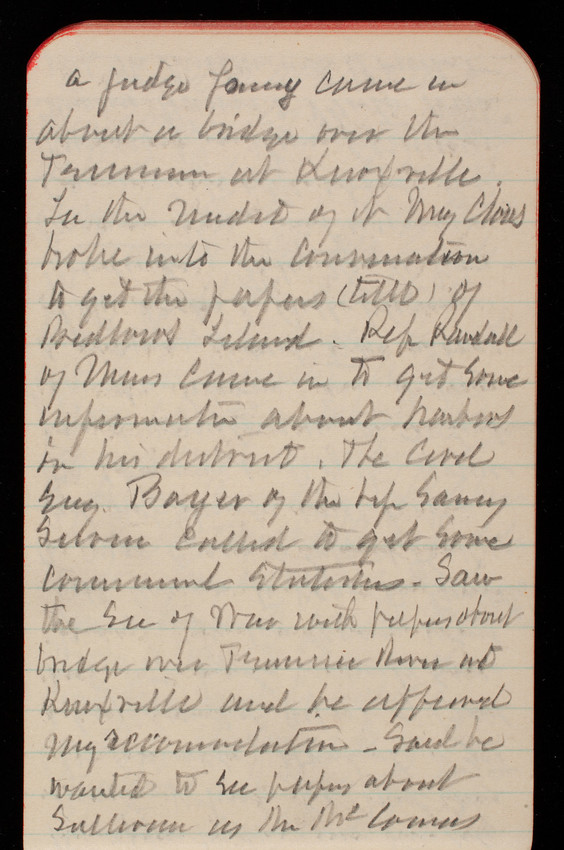 a judge came in
about a bridge over the
Tennessee at Knoxville.
In the midst of it Maj
broke into the conversation
to get the papers (title) of
Bedlows Island. Rep Randall
of Mass came in to get some
information about harbors
in his district. The Civil
Eng. Boyer of the
called to get some
commercial statistics. Saw
the Sec of War with papers about
bridge over Tennessee River at
Knoxville and he approved
my recommendation. Said he
wanted to see papers about
Sullivan as the